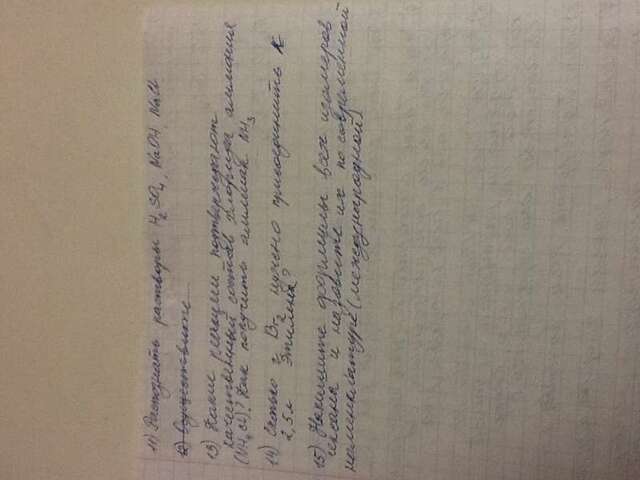 11) Распознать растворы H2SO4, NaOH, NaCl.
12) Осуществите
13) Какие реакции подтверждают
качественный состав хлорида аммония
(NH4Cl)? Как получить аммиак NH3
14) Сколько г Br2 нужно присоединить к
2,5л этилена?
15) Напишите формулы всех изомеров
гексана и назовите их по современной
номенклатуре (международной)